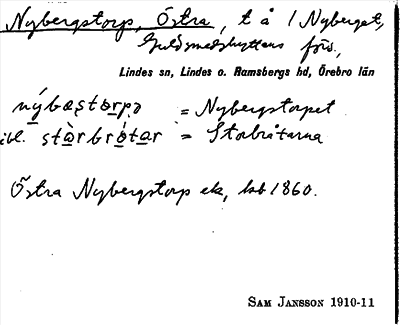 Nybergstorp, Östra, t å / Nyberget,
Guldsmedshyttans förs.,
Lindes sn, Lindes o. Ramsbergs hd, Örebro län
nýbæstɷrpə = Nybergstorpet
ibl. stàrbrótar = Storbråtarna
Östra Nybergstorp ek, kb 1860.
SAM JANSSON 1910-11